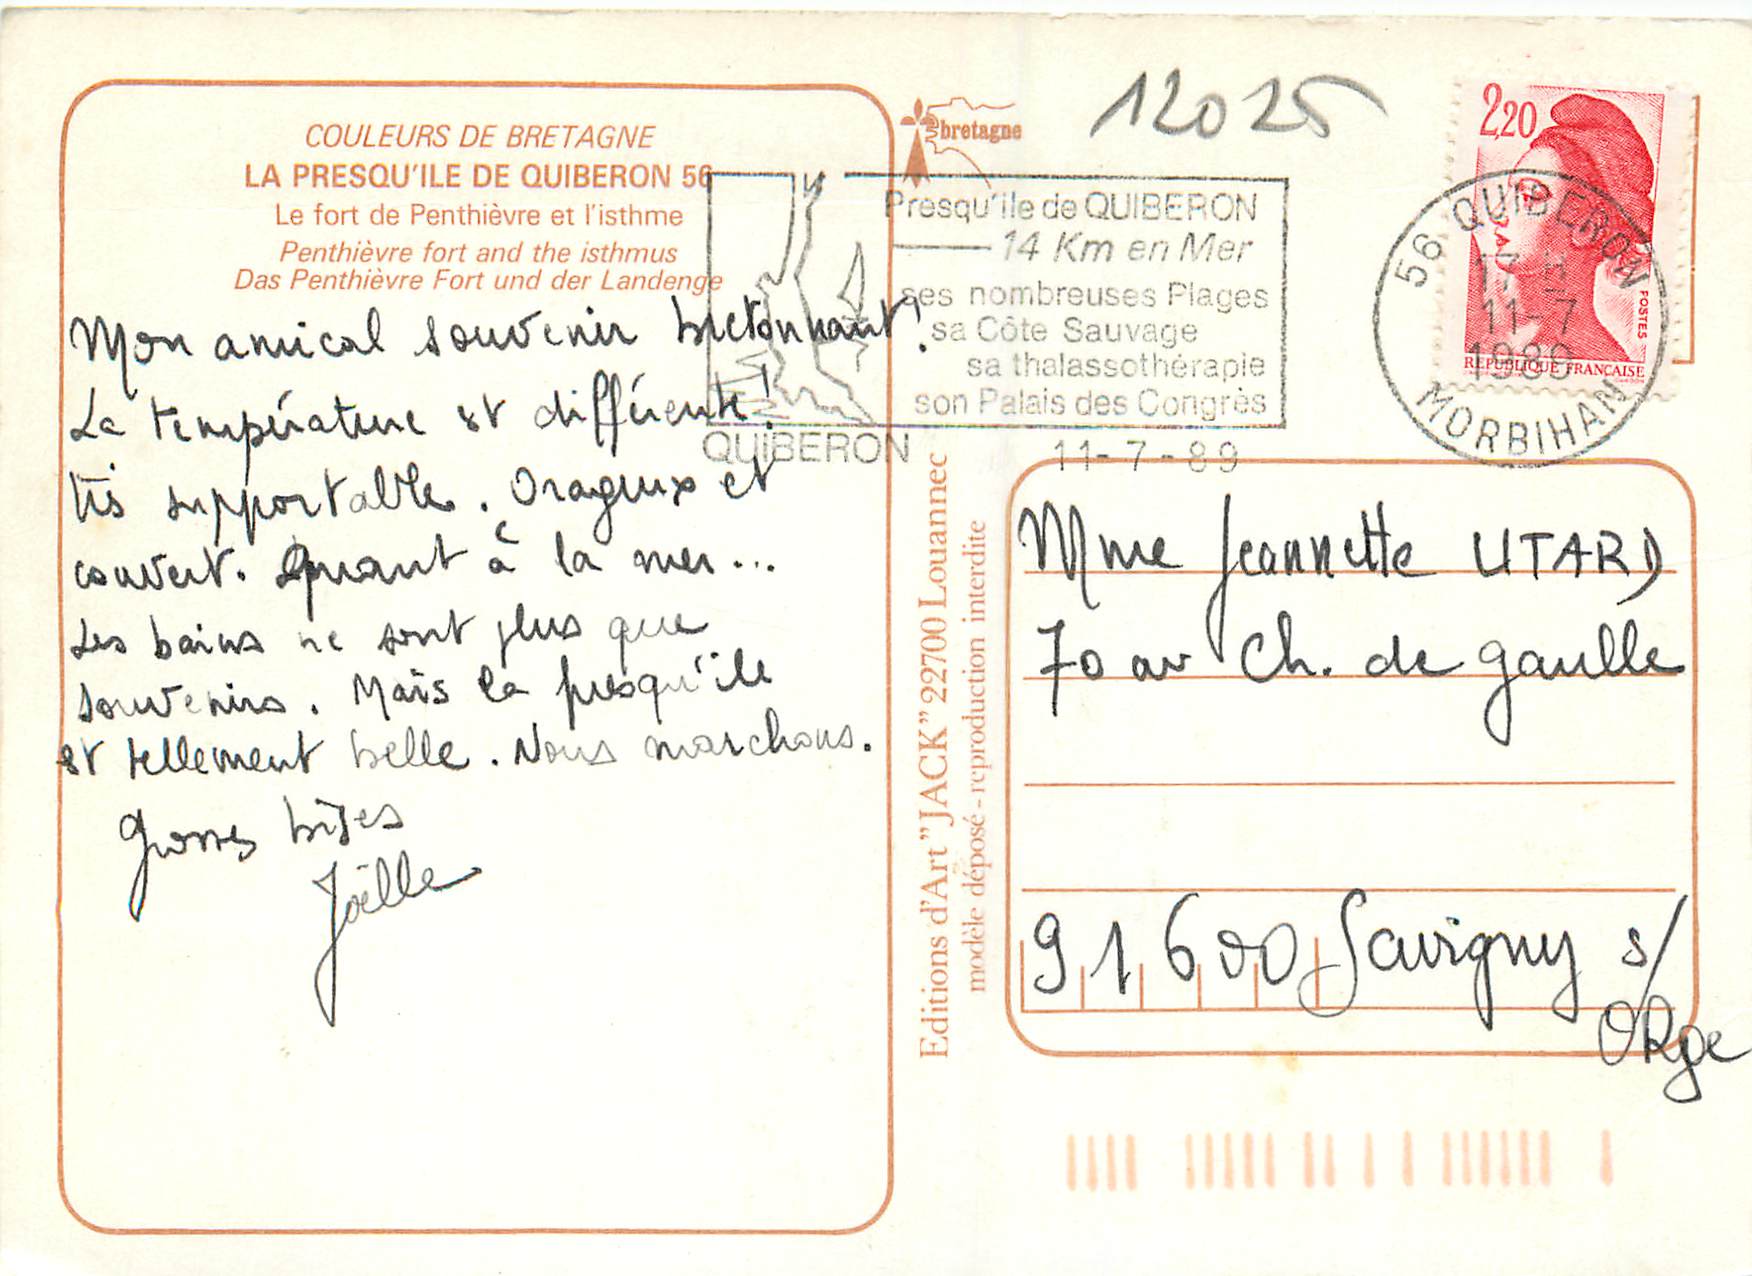 COULEURS DE BRETAGNE
LA PRESQU'ILE DE QUIBERON 56
Le fort de Penthièvre et l'isthme
Penthièvre fort and the isthmus
Das Penthièvre Fort und der Landenge
Mon amical souvenir bretonnant !
La température est différente !
très supportable. Orageux et
couvert. Quant à la mer...
Les bains ne sont plus que
souvenirs. Mais la presqu'ile
est tellement belle. Nous marchons.
Grosses bises
Joëlle
bretagne
12025
Presqu'ile de QUIBERON
14 Km en Mer
ses nombreuses Plages
sa Côte Sauvage
sa thalassothérapie
son Palais des Congrès
QUIBERON
11-7-89
2,20
POSTES
REPUBLIQUE FRANÇAISE
56 QUIBERON
17 H
11-7
1989
MORBIHAN
Editions d'Art "JACK" 22700 Louannec
modèle déposé - reproduction interdite
Mme Jeannette UTARD
70 av Ch. de gaulle
91600 Savigny s/
ORge